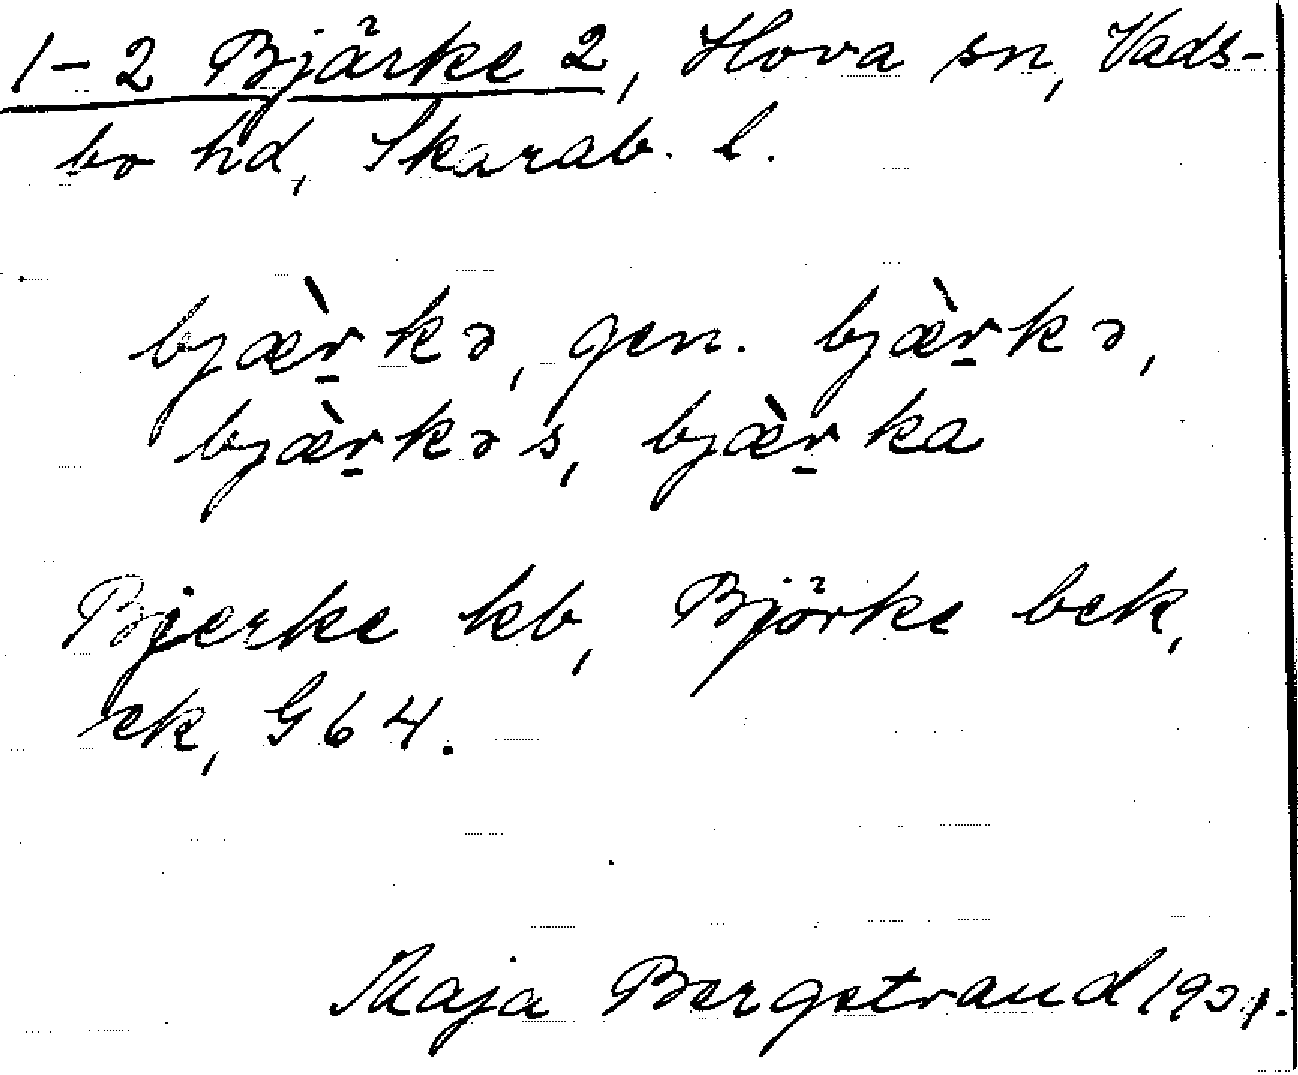 1-2 Bjärke 2, Hova sn, Vads-
bo hd, Skarab. l.
bjæ̀r̲kə, gen. bjæ̀r̲kə,
bjæ̀r̲kəs, bjæ̀r̲ka
Bjerke kb, Björke bek,
ek, G64.
Maja Bergstrand